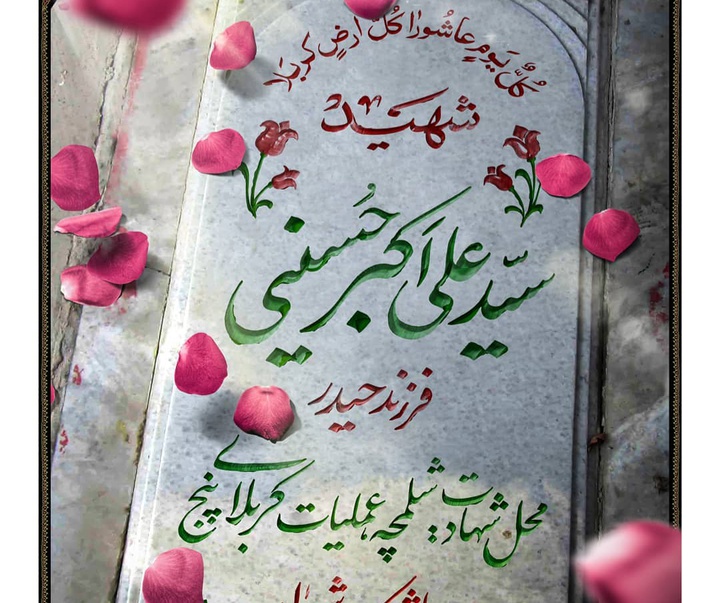 كُلُّ يَومٍ عاشُورا كُلُّ اَرضٍ كربَلا
شهید
سیّد علی اکبر حُسینی
فرزند حیدر
محل شهادت: شلمچه عملیات کربلای پنج